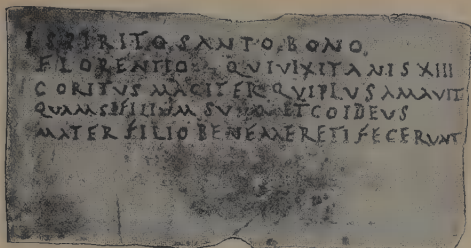 ISPIRITO SANTO BONO
FLORENTIO QVI VIXIT ANIS XIII
CORITVS MACITER QVI PLVS AMAVIT
QVAM SI FILIVM SVVM ET COIDEVS
MATER FILIO BENEMERETI FECERVNT